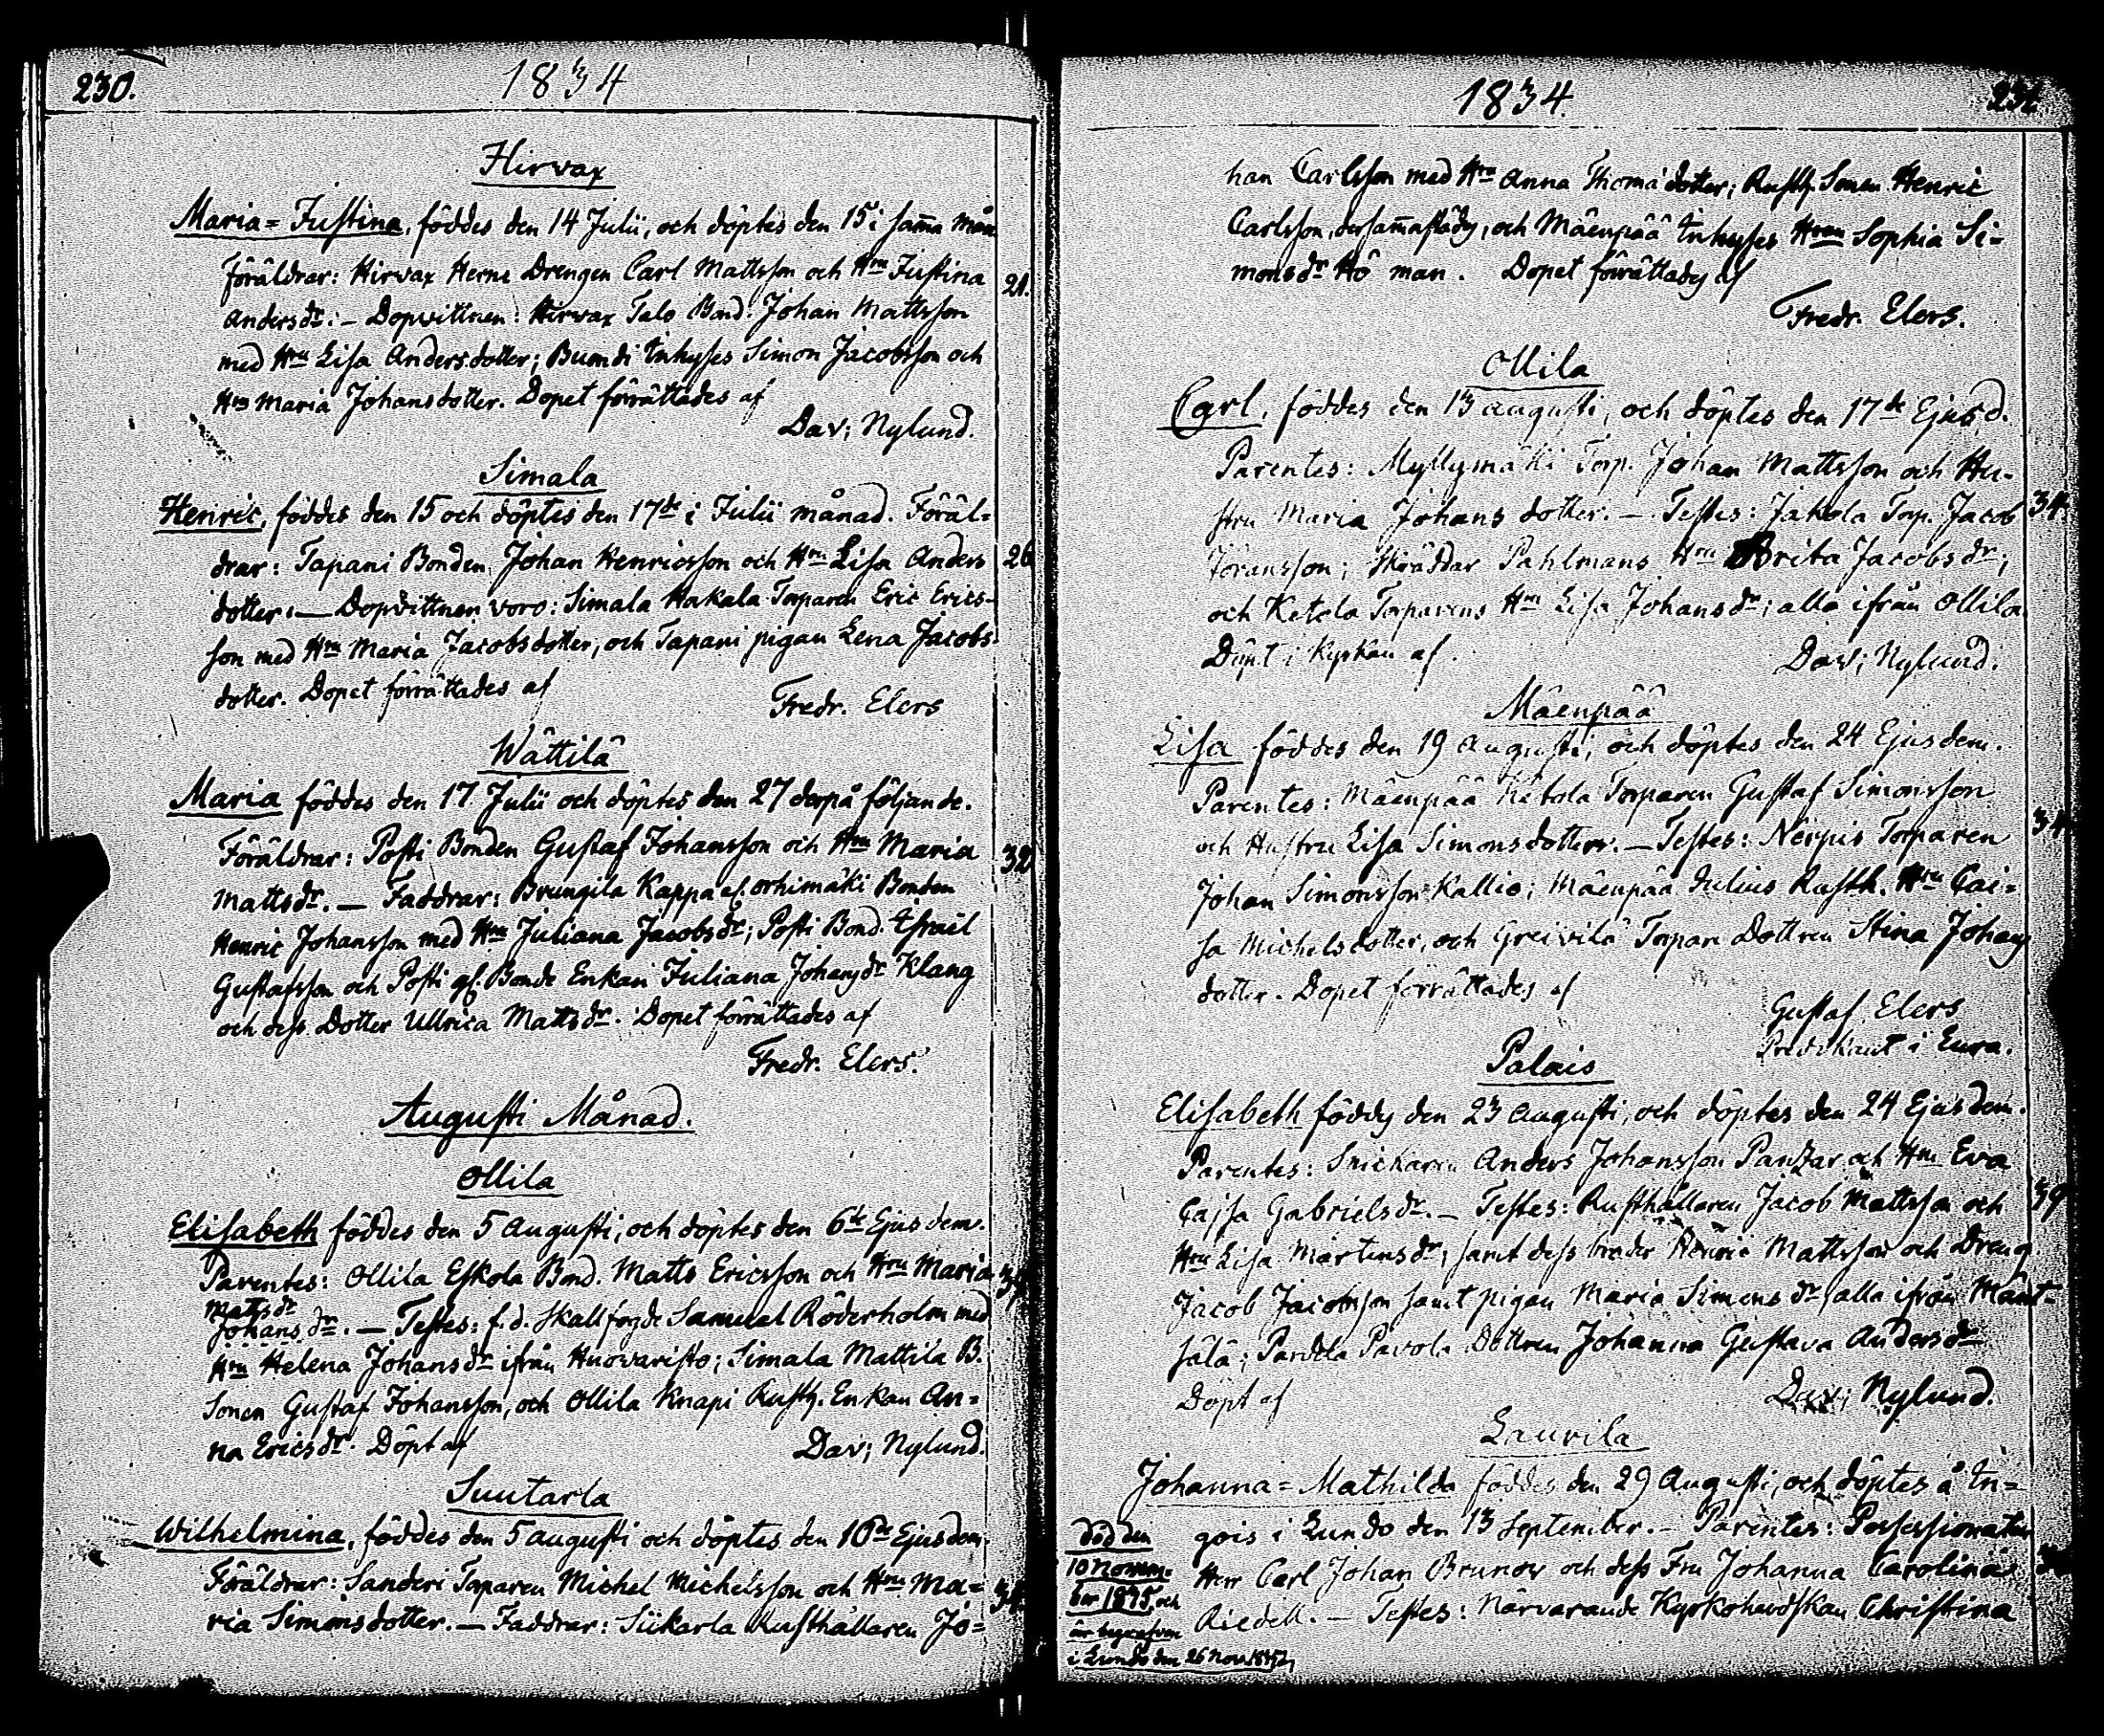 230.
1834
Hirvax
Maria=Justina, föddes den 14 Julii, och döptes den 15 i sam̄a mån
Föräldrar: Hirvax Herns Drengen Carl Mattsson och Hru Justina
21.
Andersdr. – Dopvittnen: Hirvax Talo Bond. Johan Mattsson
med Hru Lisa Andersdotter; Buomdi Inhyses Simon Jacobsson och
Hru Maria Johansdotter. Dopet förrättades af
Dav; Nylund.
Simala
Henric, föddes den 15 och döptes den 17de i Julii månad. Föräl=
drar: Tapani Bonden Johan Henricsson och Hru Lisa Anders
26
dotter. — Dopvittnen voro: Simala Hakala Torparen Eric Erics-
son med Hru Maria Jacobsdotter, och Tapani pigan Lena Jacobs-
dotter. Dopet förrättades af
Fredr. Elers
Wättilä
Maria föddes den 17 Julii och döptes den 27 derpå följande.
Föräldrar: Posti Bonden Gustaf Johansson och Hru Maria
32
Mattsdr. — Faddrar: Brungila Kappa el. orhimäki Bonden
Henric Johansson med Hru Juliana Jacobsdr; Posti Bond. Israël
Gustafsson och Posti gl. Bonde Enkan Juliana Johansdr Klang
och dess Dotter Ullrica Mattsdr. Dopet förrättades af
Fredr. Elers.
Augusti Månad.
Ollila
Elisabeth föddes den 5 Augusti, och döptes den 6te Ejusdem.
Parentes: Ollila Eskola Bond. Matts Ericsson och Hru Maria
Mattsdr
Johansdr. — Testes: f.d. Skallfogde Samuel Röderholm med
Hru Helena Johansdr ifrån Huovaristo; Simala Mattila B.
Sonen Gustaf Johansson, och Ollila Knapi Rusth. Enkan An=
na Ericsdr. Döpt af
Dav; Nylund.
Suutarla
Wilhelmina, föddes den 5 Augusti och döptes den 10de Ejusdem.
Föräldrar: Sanderi Torparen Michel Michelsson och Hru Ma=
ria Simonsdotter. — Faddrar: Siikarla Rusthållaren Jo=
1834.
han Carlsson med Hru Anna Thomädotter; Rusth. Sonen Henric
Carlsson, dersam̄astädes, och Mäenpää Inhyses Hrun Sophia Si=
monsdr Hö man. Dopet förrättades af
Fredr. Elers.
Ollila
Carl, föddes den 13 Augusti, och döptes den 17de Ejusd.
Parentes: Myllymäki Torp. Johan Mattsson och Hu-
stru Maria Johans dotter. — Testes: Jakola Torp. Jacob
34
Göransson; Skräddar Pahlmans Hru Brita Jacobsdr;
och Ketola Torparens Hru Lisa Johansdr; alla ifrån Ollila.
Döpt i Kyrkan af
Dav; Nylund.
Mäenpää
Lisa föddes den 19 Augusti, och döptes den 24 Ejusdem.
Parentes: Mäenpää Ketola Torparen Gustaf Simonsson
och Hustru Lisa Simonsdotter. — Testes: Neipis Torparen
Johan Simonsson Kallio; Mäenpää Julius Rusth. Hru Cai=
sa Michelsdotter, och Greivilä Torpare Dottren Stina Johans
dotter. Dopet förrättades af
Gustaf Elers
Predikant i Eura.
Palais
Elisabeth föddes den 23 Augusti, och döptes den 24 Ejusdem.
Parentes: Snickaren Anders Johansson Panzar och Hru Eva
Cajsa Gabrielsdr. — Testes: Rusthållaren Jacob Mattsson och
39
Hru Lisa Mårtensdr, samt dess broder Henric Mattsson och Dreng
Jacob Jacobsson samt pigan Maria Simonsdr alla ifrån Mänt=
sälä; Pardla Pavola Dottren Johanna Gustava Andersdr
Döpt af
Dav; Nylund.
Laurila
Johanna=Mathilda föddes den 29 Augusti, och döptes å In=
gois i Lundo den 13 September. — Parentes: Possessionaten
Herr Carl Johan Brunow och dess Fru Johanna Carolina
Riedell. — Testes: Närvarande Kyrkoherdskan Christina
död den
10 Novem-
ber 1835 och
är begrafven
i Lundo den 26 Nov.